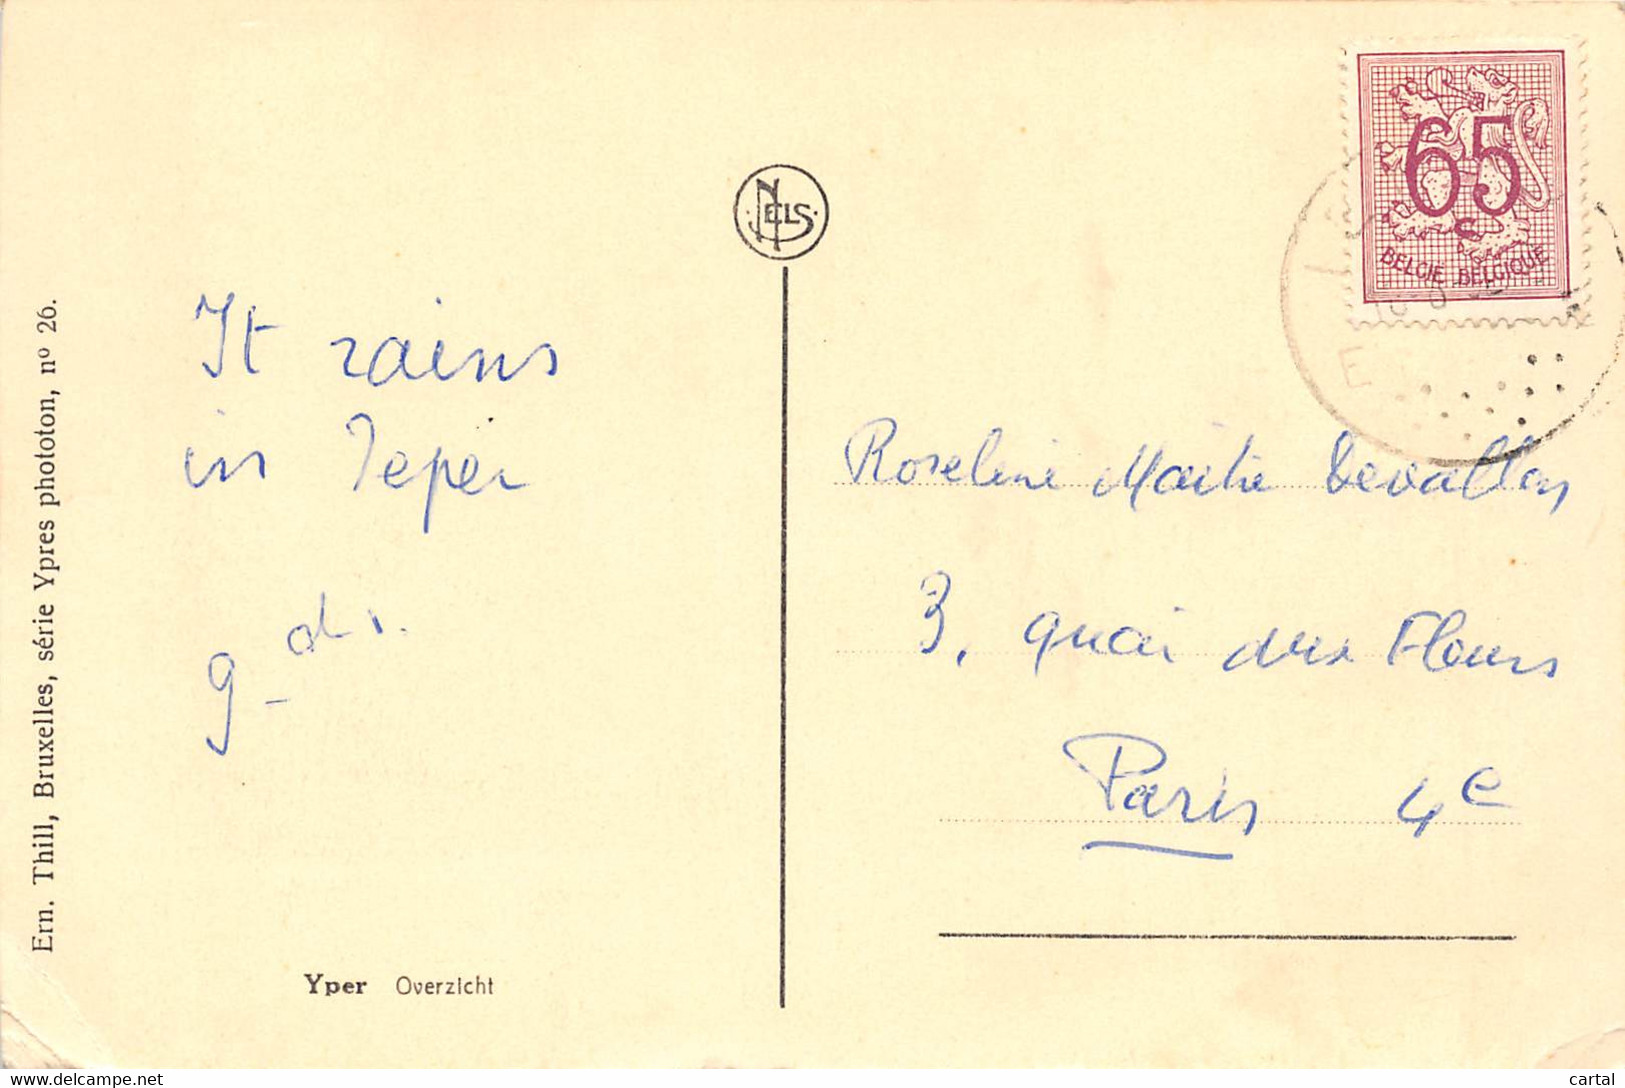 Ern. Thill, Bruxelles, série Ypres phototon, nº 26.
It rains
in Ieper
Yper Overzicht
NELS
65
c
BELGIE BELGIQUE
Roseline Maïtie Devallon
3, quai des Fleurs
Paris 4e
www.delcampe.net
cartal